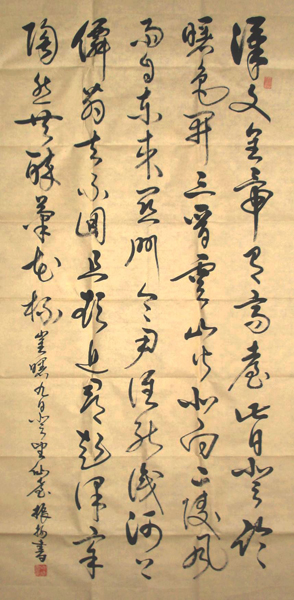 漢文皇帝有高臺此日登臨
曙色開三晉雲山皆北向二陵風
雨自東來關門令尹誰能識河上
僊翁去不回且欲近尋彭澤宰
陶然共醉菊花杯 崔曙九日登望仙臺 振書